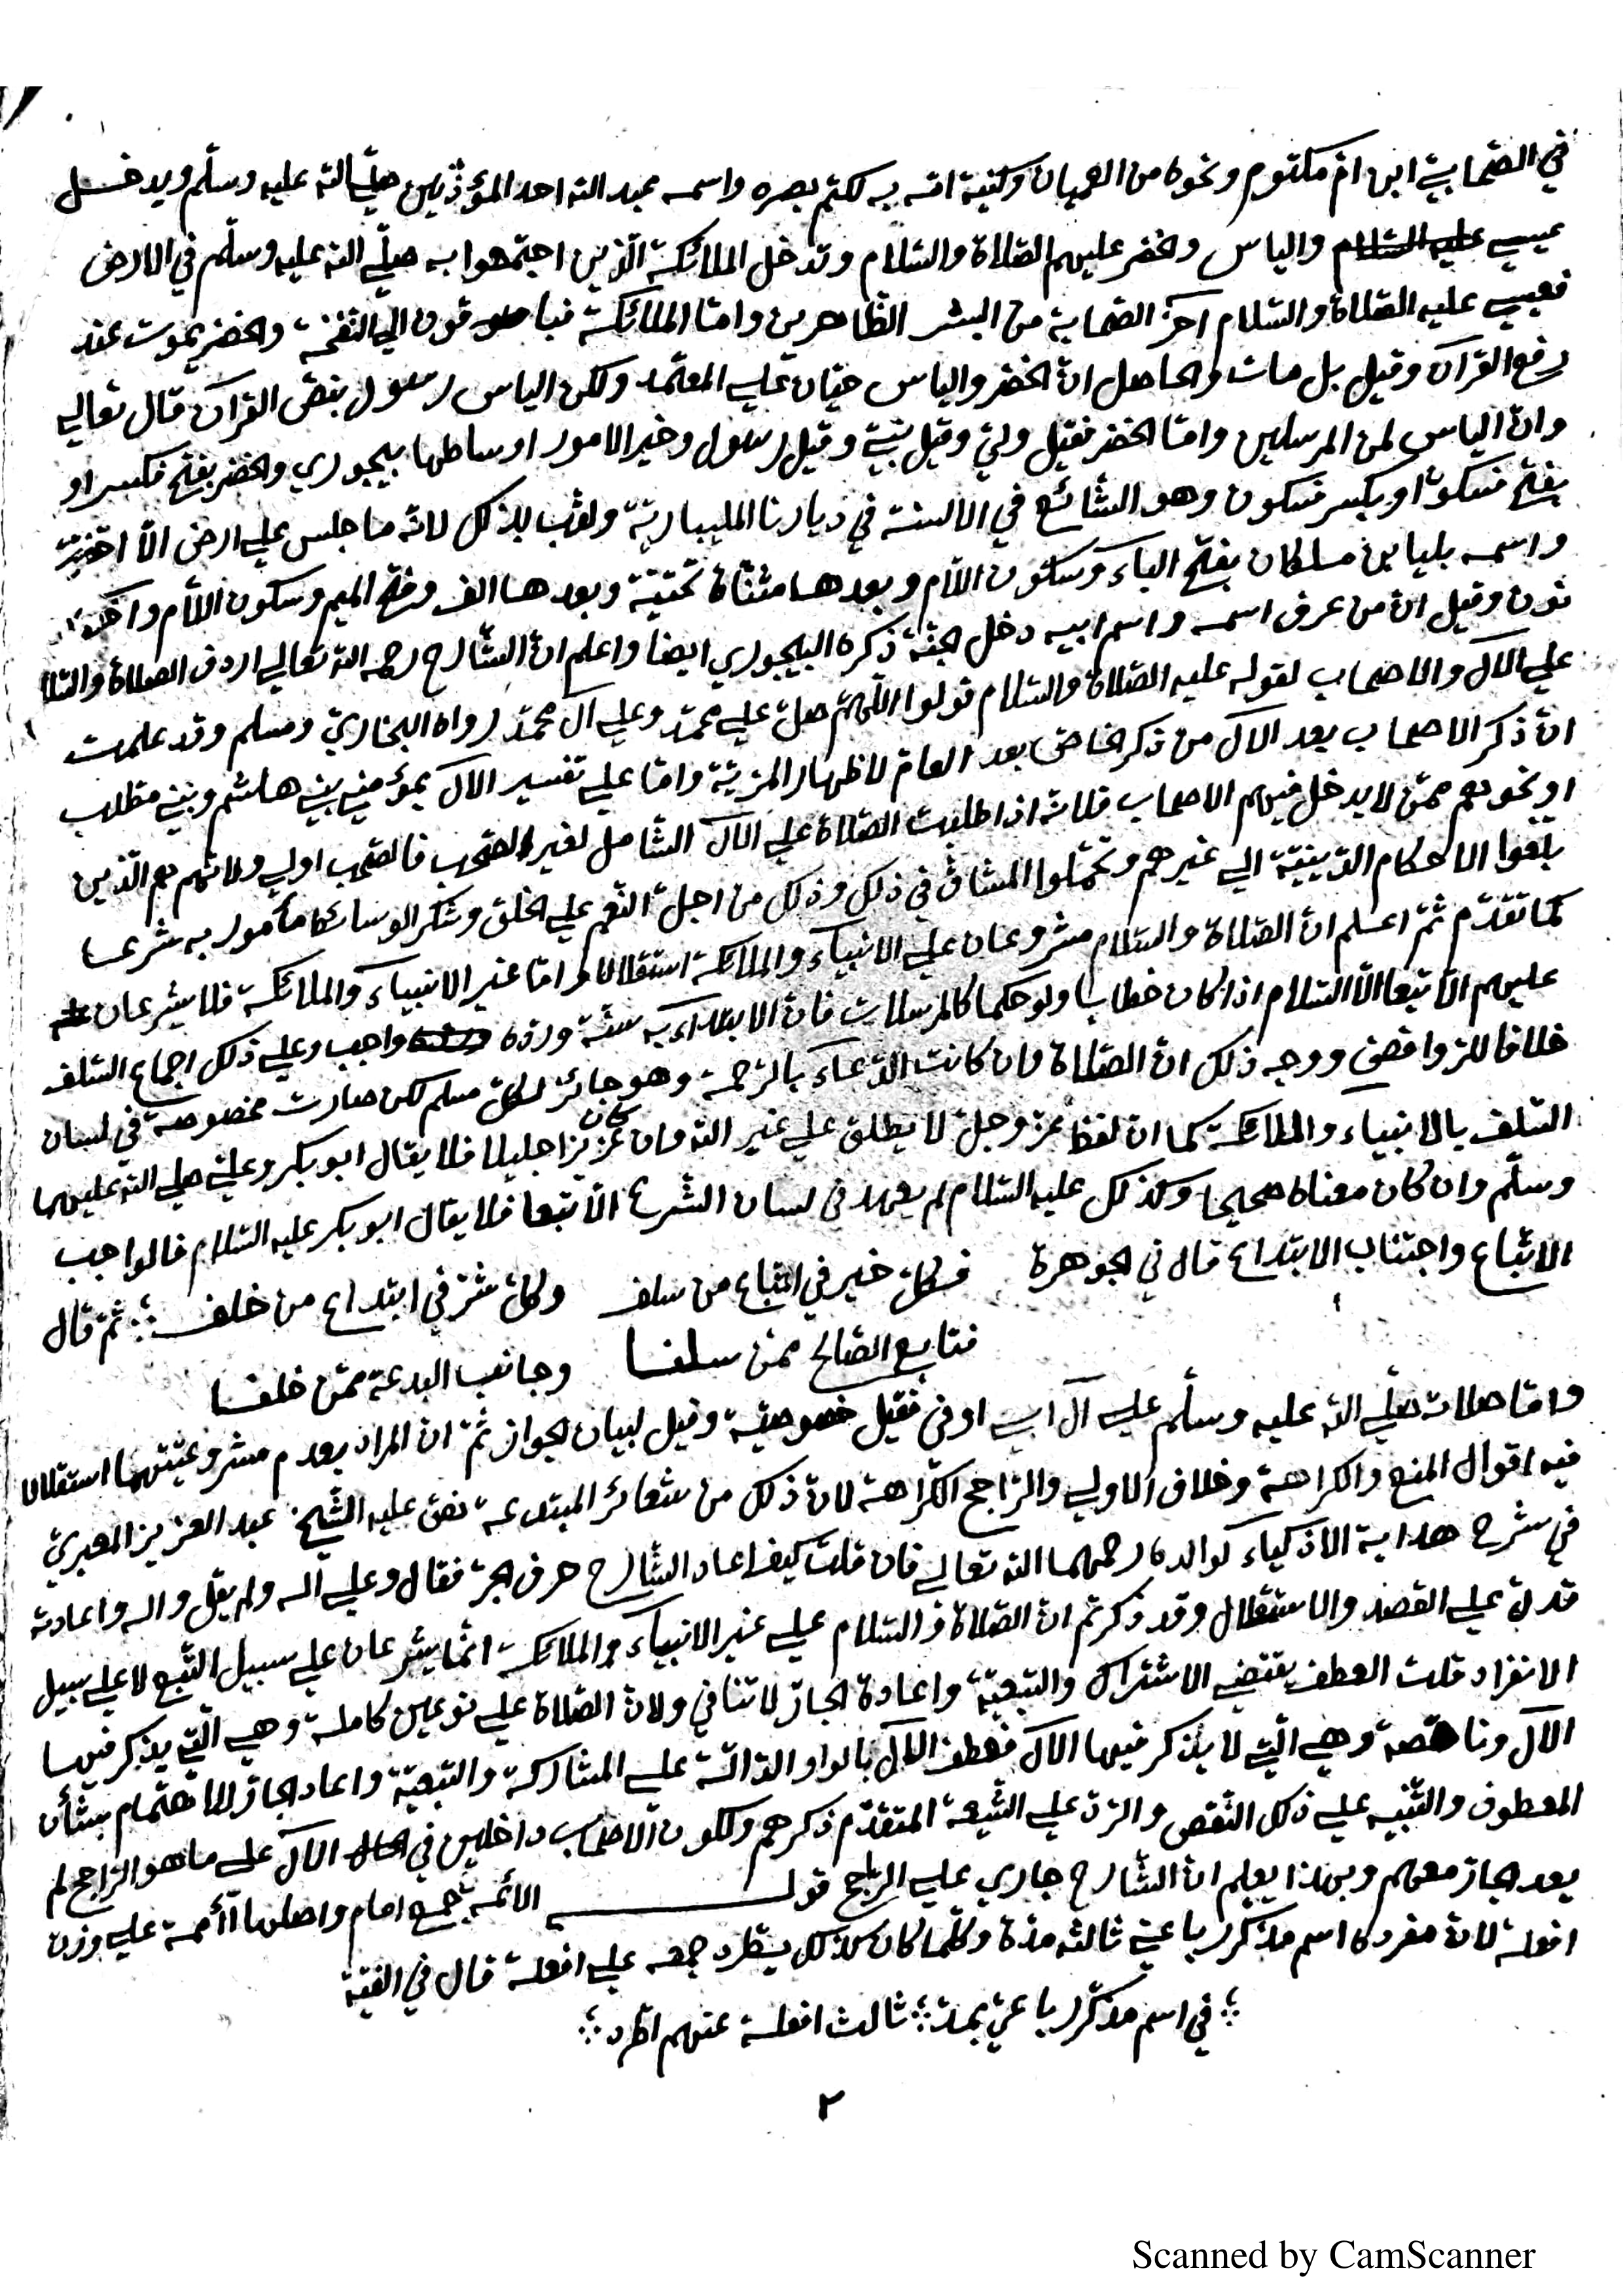 في الصّحابيّ ابن امّ مكتوم ونحوه من العميان وكنية امّه به لكتم بصره واسمه عبد الله احد المؤذّنين صلّى الله عليه وسلّم ويدخل
عيسى والياس والخضر عليهم الصّلاة والسّلام وتدخل الملائكة الّذين اجتمعوا به صلّى الله عليه وسلّم في الارض
فعيسى عليه الصّلاة والسّلام آخر الصّحابة من البشر الظّاهرين وامّا الملائكة فباقون الى النّفخة والخضر يموت عند
رفع القرآن وقيل بل مات والحاصل انّ الخضر والياس حيّان على المعتمد ولكن الياس رسول بنصّ القرآن قال تعالى
وانّ الياس لمن المرسلين وامّا الخضر فقيل وليّ وقيل نبيّ وقيل رسول وخير الامور اوساطها بيجوري والخضر بفتح فكسر او
بفتح فسكون او بكسر فسكون وهو الشّائع في الالسنة في ديارنا المليباريّة ولقّب بذلك لانّه ما جلس على ارض الّا اخضرّت
واسمه بليا بن ملكان بفتح الباء وسكون اللّام وبعدها مثنّاة تحتيّة وبعدها الف وفتح الميم وسكون اللّام وآخره
نون وقيل انّ من عرف اسمه واسم ابيه دخل الجنّة ذكره البيجوري ايضا واعلم انّ الشّارح رحمه الله تعالى اردف الصلاة والسّلا
على الآل والاصحاب لقوله عليه الصّلاة والسّلام قولوا اللّهمّ صلّ على محمّد وعلى آل محمّد رواه البخاريّ ومسلم وقد علمت
انّ ذكر الاصحاب بعد الآل من ذكر الخاصّ بعد العامّ لاظهار المزيّة وامّا على تفسير الآل بمؤمني بني هاشم وبني مطّلب
او نحوهم ممّن لا يدخل فيهم الاصحاب فلانّه اذا طلبت الصّلاة على الآل الشّامل لغير الصّحب فالصّحب اولى ولانّهم هم الّذين
بلّغوا الاحكام الدّينيّة الى غيرهم وتحمّلوا المشاقّ في ذلك وذلك من اجلّ النّعم على الخلق وشكر الوسائط مأمور به شرعا
كما تقدّم ثمّ اعلم انّ الصّلاة والسّلام مشروعان على الانبياء والملائكة استقلالا وامّا غير الانبياء والملائكة فلا يشرعان
عليهم الّا تبعا الّا السّلام اذا كان خطابا ولو حكما كالمرسلات فانّ الابتداء به سنّة وردّه واجب وعلى ذلك اجماع السّلف
خلافا للرّوافض ووجه ذلك انّ الصّلاة وان كانت الدّعاء بالرّحمة وهو جائز لكلّ مسلم لكن صارت مخصوصة في لسان
السّلف بالانبياء والملائكة كما انّ لفظ عزّ وجلّ لا يطلق على غير الله وان كان عزيزا جليلا فلا يقال ابو بكر وعليّ صلّى الله عليهما
وسلّم وان كان معناه صحيحا وكذلك عليه السّلام لم يعهد في لسان الشّرع الّا تبعا فلا يقال ابو بكر عليه السّلام فالواجب
الاتّباع واجتناب الابتداع قال في الجوهرة فكلّ خير في اتّباع من سلف وكلّ شرّ في ابتداع من خلف ؛ ثمّ قال
فتابع الصّالح ممّن سلفا وجانب البدعة ممّن خلفا
وامّا صلاته صلّى الله عليه وسلّم على آل ابي اوفى فقيل خصوصيّة وقيل لبيان الجواز ثمّ انّ المراد بعدم مشروعيّتهما استقلالا
فيه اقوال المنع والكراهة وخلاف الاولى والرّاجح الكراهة لانّ ذلك من شعائر المبتدعة نصّ عليه الشّيخ عبد العزيز المعبريّ
في شرح هداية الاذكياء لوالده رحمهما الله تعالى فان قلت كيف اعاد الشّارح حرف الجرّ فقال وعلى آله ولم يقل وآله واعادته
تدلّ على القصد والاستقلال وقد ذكرتم انّ الصّلاة والسّلام على غير الانبياء والملائكة انّما يشرعان على سبيل التّبع لا على سبيل
الانفراد قلت العطف يقتضي الاشتراك والتّبعيّة واعادة الجارّ لا تنافي ولانّ الصّلاة على نوعين كاملة وهي الّتي يذكر فيها
الآل وناقصة وهي الّتي لا يذكر فيها الآل فعطف الآل بالواو الدّالّة على المشاركة والتّبعيّة واعاد الجارّ للاهتمام بشأن
المعطوف والتّنبيه على ذلك النّقص والردّ على الشّيعة المتقدّم ذكرهم ولكون الاصحاب داخلين في الآل على ما هو الرّاجح لم
يعد الجارّ معهم وبهذا يعلم انّ الشّارح جاري على الرّاجح قوله الائمّة جمع امام واصلها أأممة على وزن
افعلة لانّ مفرده اسم مذكّر رباعيّ ثالثه مدّة وكلّما كان كذلك يطّرد جمعه على افعلة قال في الفيّة
؛ في اسم مذكّر رباعيّ بمدّ ؛ ثالث افعلة عنهم اطّرد ؛
٢
Scanned by CamScanner